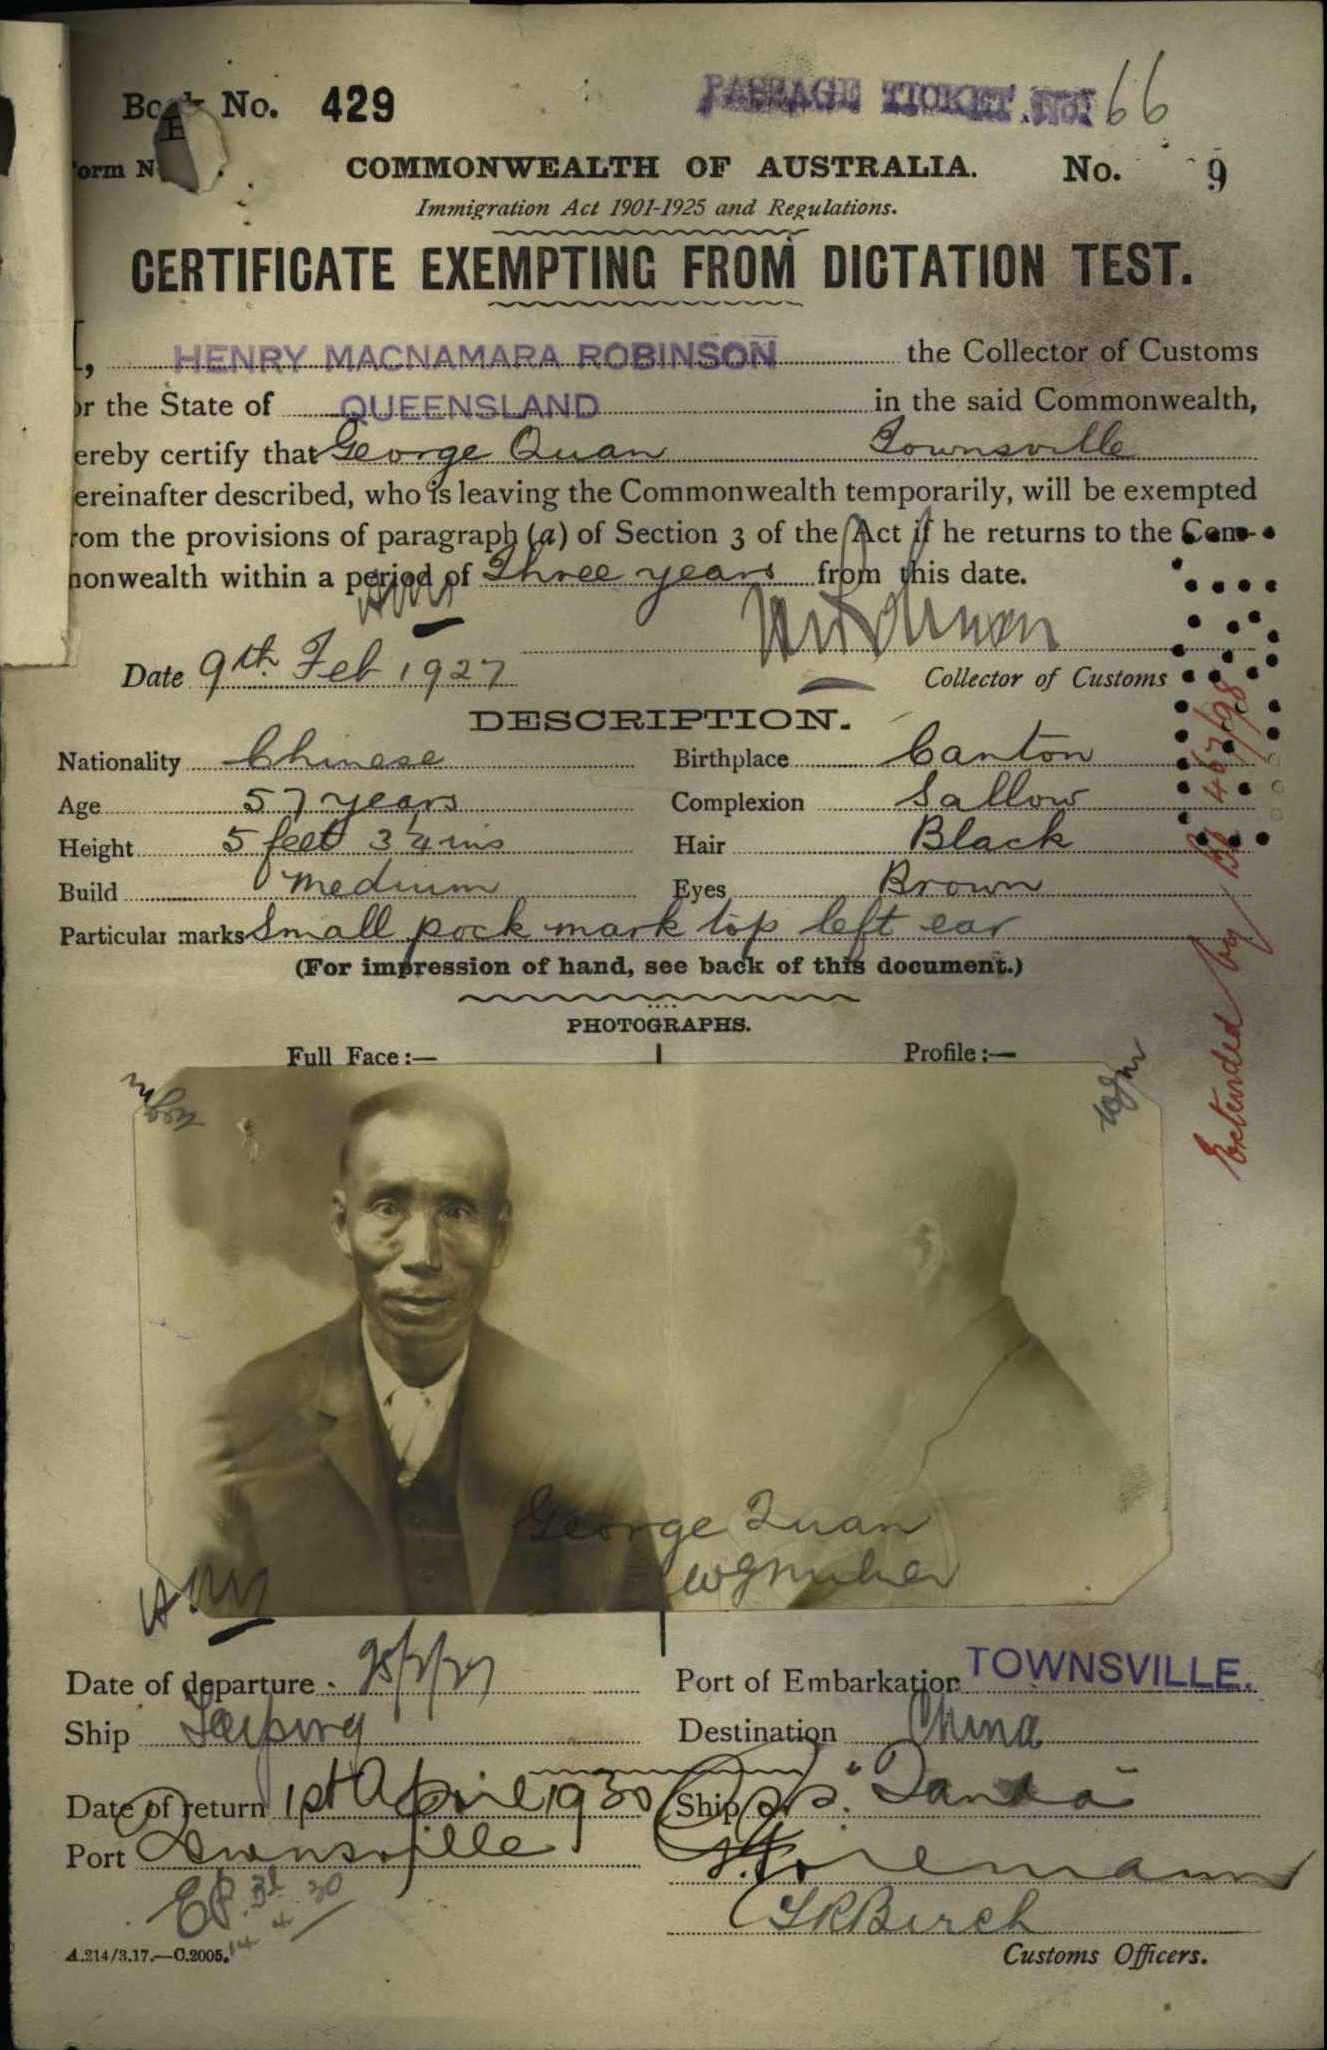 Book No. 429
PASSAGE TICKET No. 66
Form N
COMMONWEALTH OF AUSTRALIA. No. 9
Immigration Act 1901-1925 and Regulations.
CERTIFICATE EXEMPTING FROM DICTATION TEST.
I, HENRY MACNAMARA ROBINSON the Collector of Customs
or the State of QUEENSLAND in the said Commonwealth,
ereby certify that George Quan Townsville
ereinafter described, who is leaving the Commonwealth temporarily, will be exempted
rom the provisions of paragraph (a) of Section 3 of the Act if he returns to the Com-
monwealth within a period of Three years from this date.
Date 9th Feb 1927
Collector of Customs
DESCRIPTION.
Nationality Chinese Birthplace Canton
Age 57 years Complexion Sallow
Height 5 feet 3 1/4 ins Hair Black
Build medium Eyes Brown
Particular marks Small pock mark top left ear
(For impression of hand, see back of this document.)
Extended by 467/98
PHOTOGRAPHS.
Full Face:— Profile:—
George Quan
Date of departure Port of Embarkation TOWNSVILLE.
Ship Taiping Destination China
Date of return 1st April 1930 Ship S.S. "Tanda"
Port Townsville
LRBirch
A.214/3.17.—C.2005. Customs Officers.